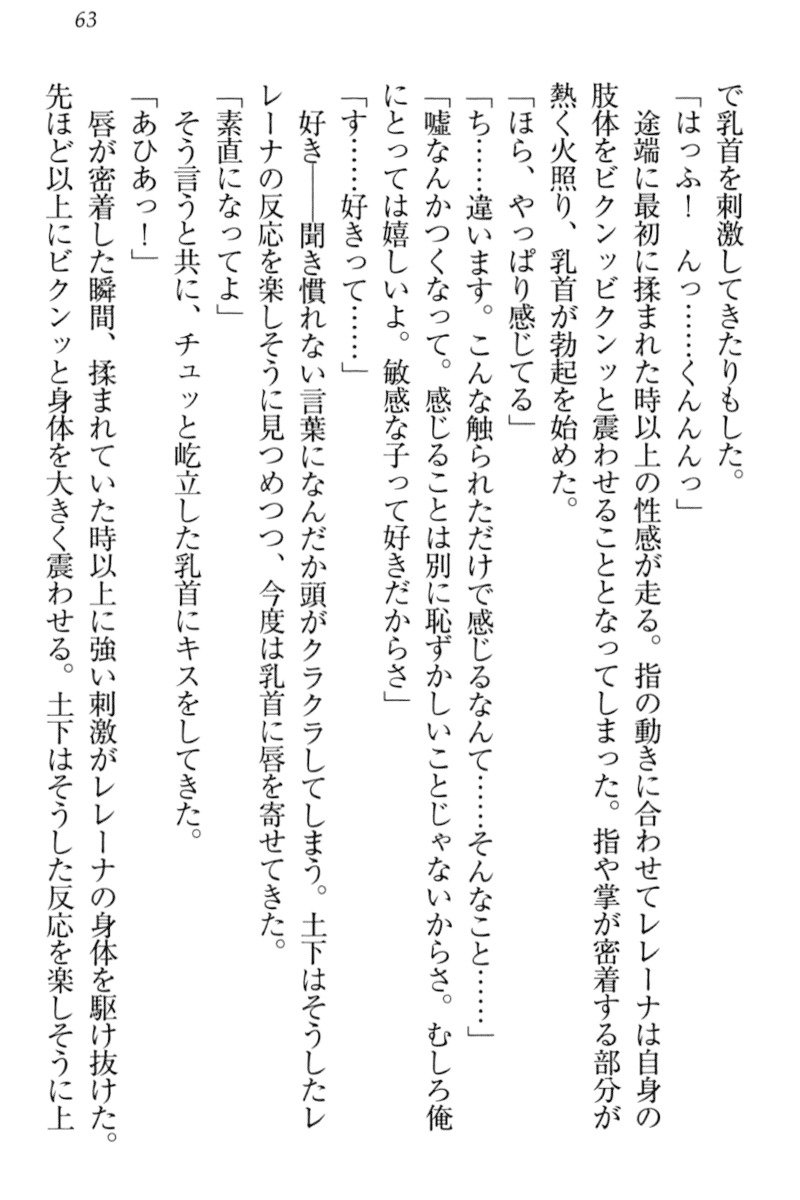 63
で乳首を刺激してきたりもした。
「はっふ！　んっ……くんんんっ」
途端に最初に揉まれた時以上の性感が走る。指の動きに合わせてレレーナは自身の
肢体をビクンッビクンッと震わせることとなってしまった。指や掌が密着する部分が
熱く火照り、乳首が勃起を始めた。
「ほら、やっぱり感じてる」
「ち……違います。こんな触られただけで感じるなんて……そんなこと……」
「嘘なんかつくなって。感じることは別に恥ずかしいことじゃないからさ。むしろ俺
にとっては嬉しいよ。敏感な子って好きだからさ」
「す……好きって……」
好き――聞き慣れない言葉になんだか頭がクラクラしてしまう。土下はそうしたレ
レーナの反応を楽しそうに見つめつつ、今度は乳首に唇を寄せてきた。
「素直になってよ」
そう言うと共に、チュッと屹立した乳首にキスをしてきた。
「あひあっ！」
唇が密着した瞬間、揉まれていた時以上に強い刺激がレレーナの身体を駆け抜けた。
先ほど以上にビクンッと身体を大きく震わせる。土下はそうした反応を楽しそうに上